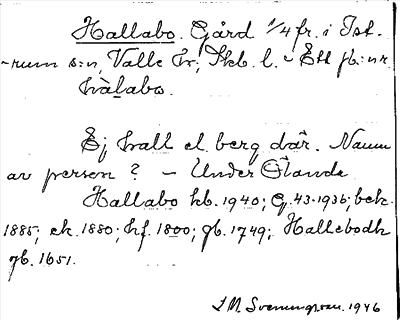 Hallabo. Gård 1/4 fr. i Ist-
-rum s:n, Valle hr; Skb. l. - Ett fb:nr
hàlabo.
Ej hall el. berg där. Namn
av person? - Under Ölanda
Hallabo kb. 1940; G. 43. 1936; bek.
1885; ek. 1880; hf. 1800; gb. 1749; Hallebodh
gb. 1651.
J M. Sveningsson. 1946